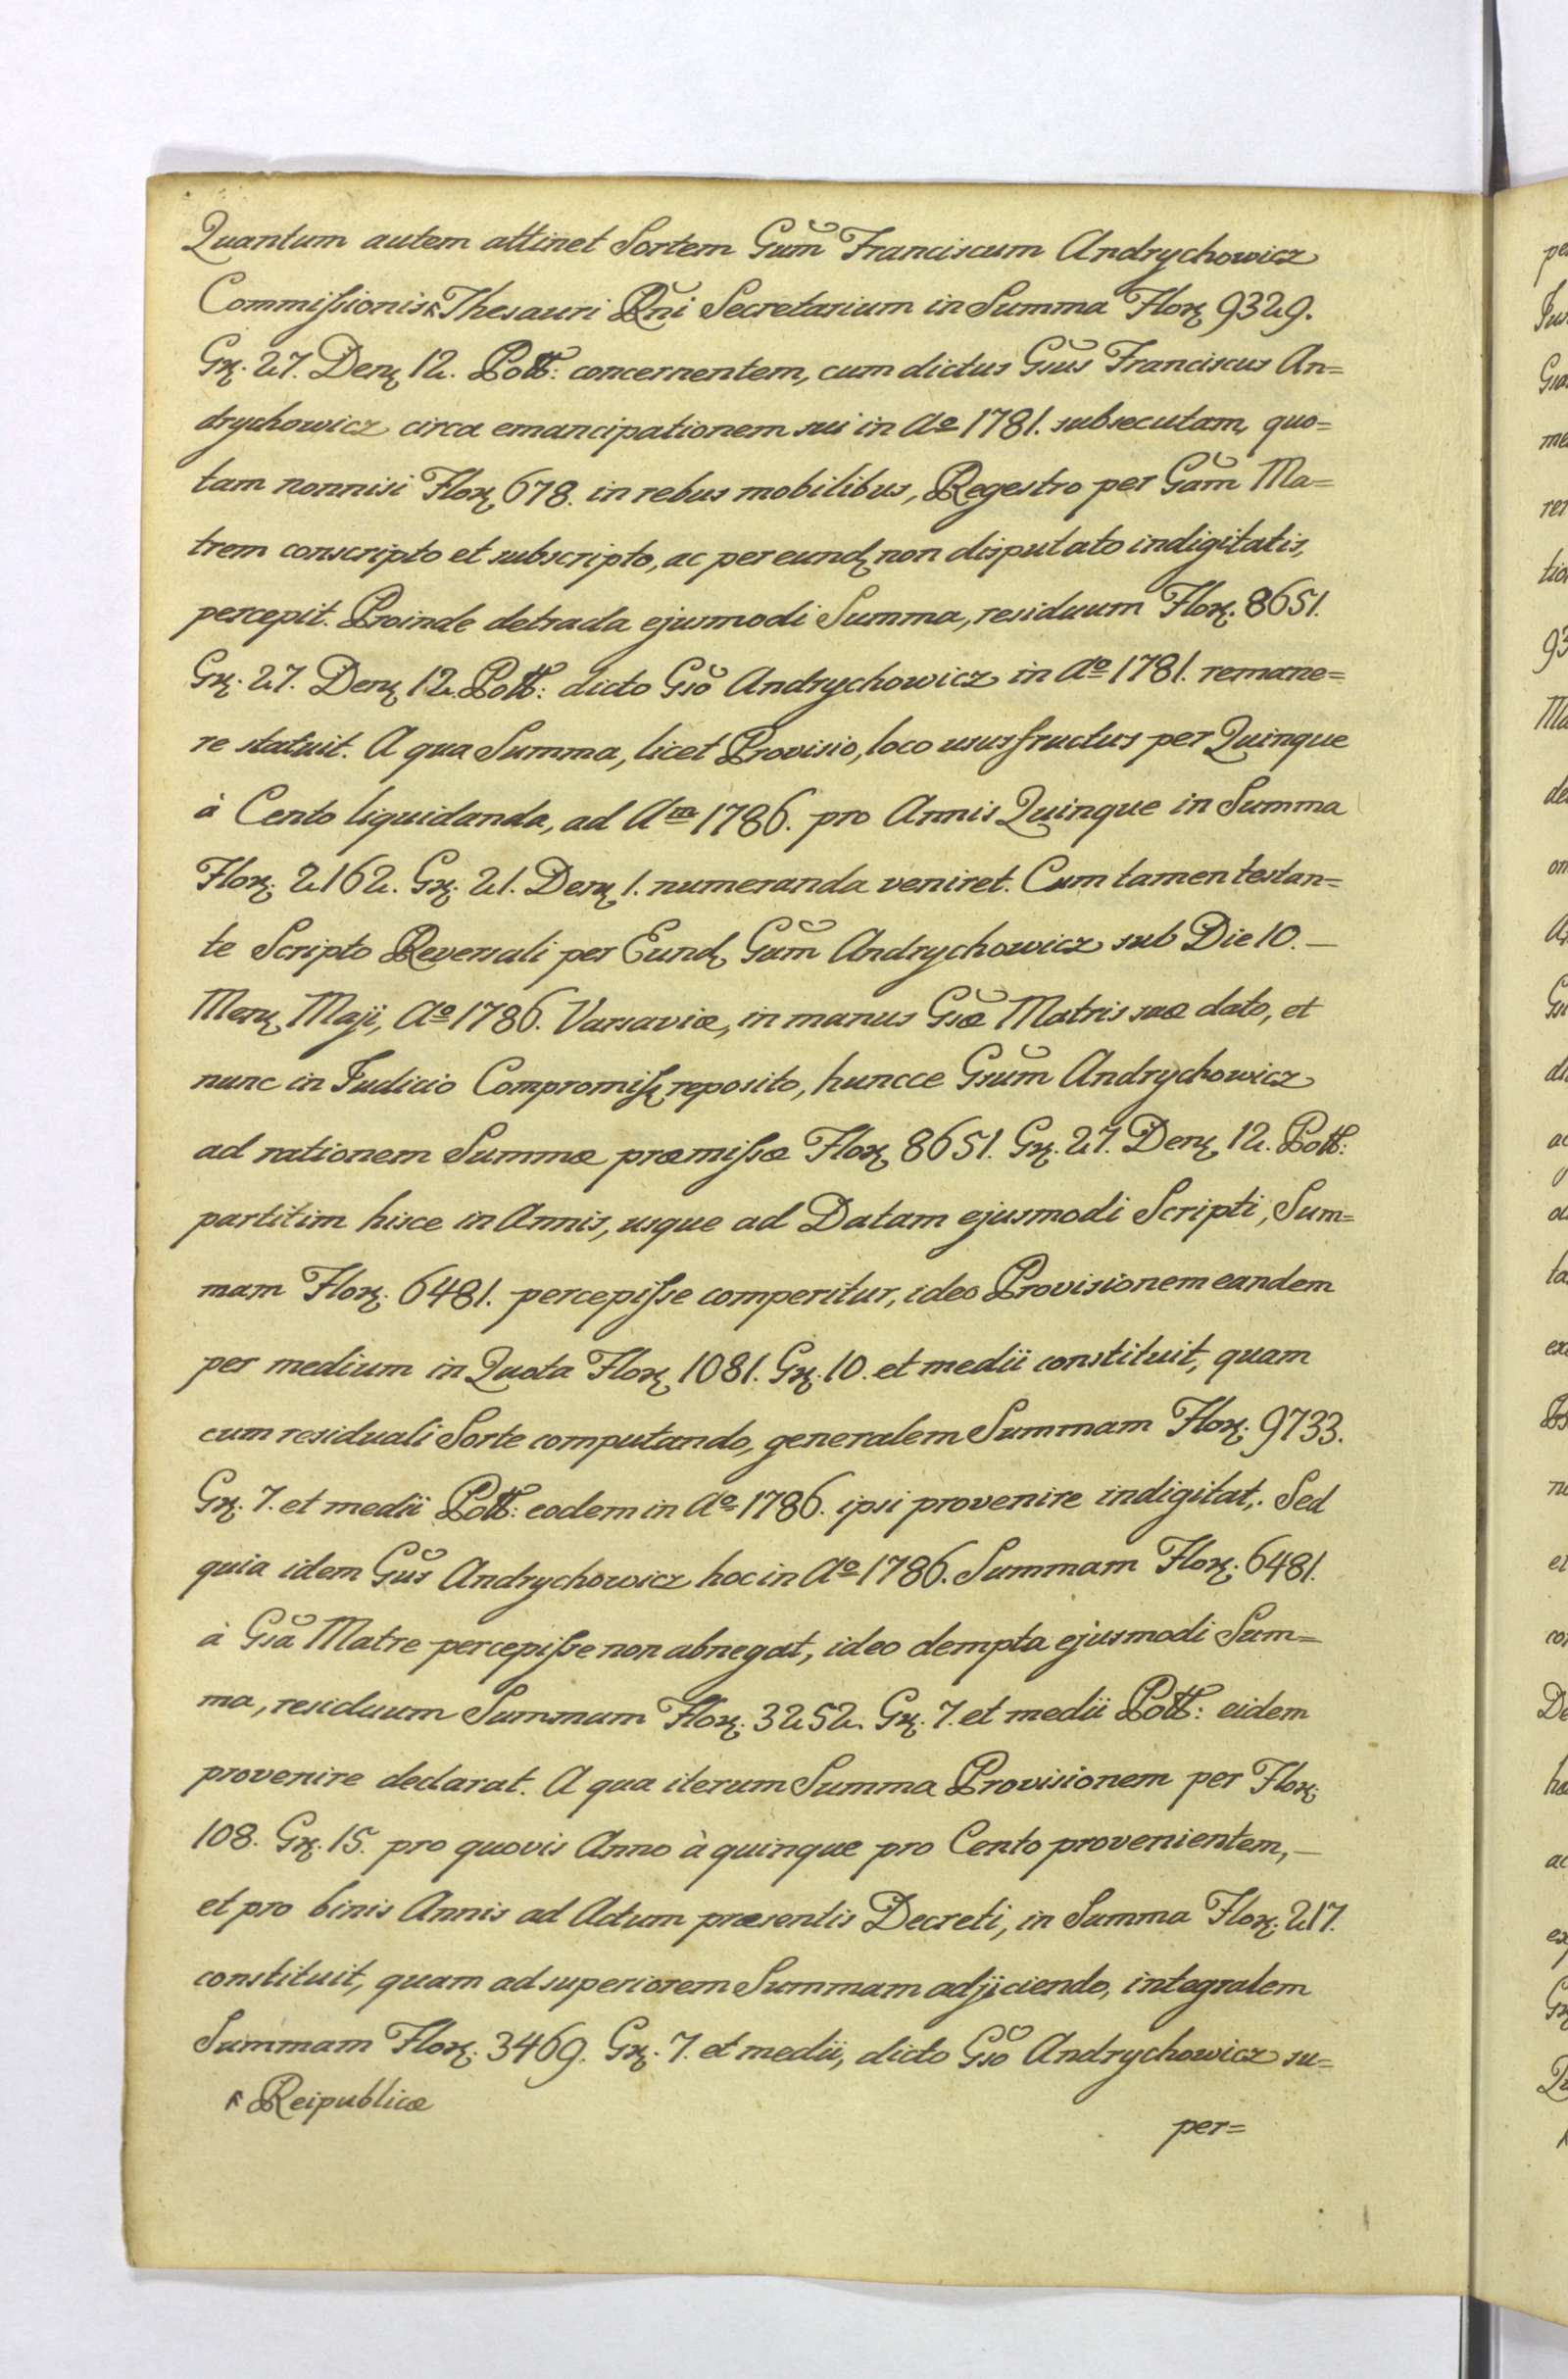 Quantum autem attinet Sortem Gūm Franciscum Andrychowicz
Commiſsionis ^ Thesauri Rn̄i Secretarium in Summa Florꝫ 9329.
Grꝫ. 27. Denꝫ 12. Poll: concernentem, cum dictus Gsus Franciscus An=
drychowicz circa emancipationem sui in Aº 1781. subsecutam, quo=
tam nonnisi Florꝫ 678. in rebus mobilibus, Regestro per Gām Ma=
trem conscripto et subscripto, ac per eundꝫ non disputato indigitatis,
percepit. Proinde detracta ejusmodi Summa, residuum Florꝫ. 8651.
Grꝫ. 27. Denꝫ 12. Poll: dicto Gsō Andrychowicz in Aº 1781. remane=
re statuit. A qua Summa, licet Provisio, loco ususfructus per Quinque
à Cento liquidanda, ad Aᵐ 1786. pro Annis Quinque in Summa
Florꝫ. 2162. Grꝫ. 21. Denꝫ 1. numeranda veniret. Cum tamen testan=
te Scripto Reversali per Eundꝫ Gūm Andrychowicz sub Die 10. —
Mensꝫ Maji, Aº 1786. Varsaviæ, in manus Gsæ Matris suæ dato, et
nunc in Judicio Compromiſsꝫ reposito, huncce Gsūm Andrychowicz
ad rationem Summæ præmiſsæ Florꝫ 8651. Grꝫ. 27. Denꝫ 12. Poll:
partitim hisce in Annis, usque ad Datam ejusmodi Scripti, Sum=
mam Florꝫ. 6481. percepiſse comperitur, ideo Provisionem eandem
per medium in Quota Florꝫ 1081. Grꝫ. 10. et medii constituit, quam
cum residuali Sorte computando, generalem Summam Florꝫ. 9733.
Grꝫ. 7. et medii Poll: eodem in Aº 1786. ipsi provenire indigitat,. Sed
quia idem Gūs Andrychowicz hoc in Aº 1786. Summam Florꝫ. 6481.
à Gsā Matre percepiſse non abnegat, ideo dempta ejusmodi Sum=
ma, residuum Summum Florꝫ. 3252. Grꝫ. 7. et medii Poll: eidem
provenire declarat. A qua iterum Summa Provisionem per Florꝫ.
108. Grꝫ. 15. pro quovis Anno à quinque pro Cento provenientem, —
et pro binis Annis ad Actum præsentis Decreti, in Summa Florꝫ. 217.
constituit, quam ad superiorem Summam adjiciendo, integralem
Summam Florꝫ. 3469. Grꝫ. 7. et medii, dicto Gsō Andrychowicz su=
^ Reipublicæ
per=